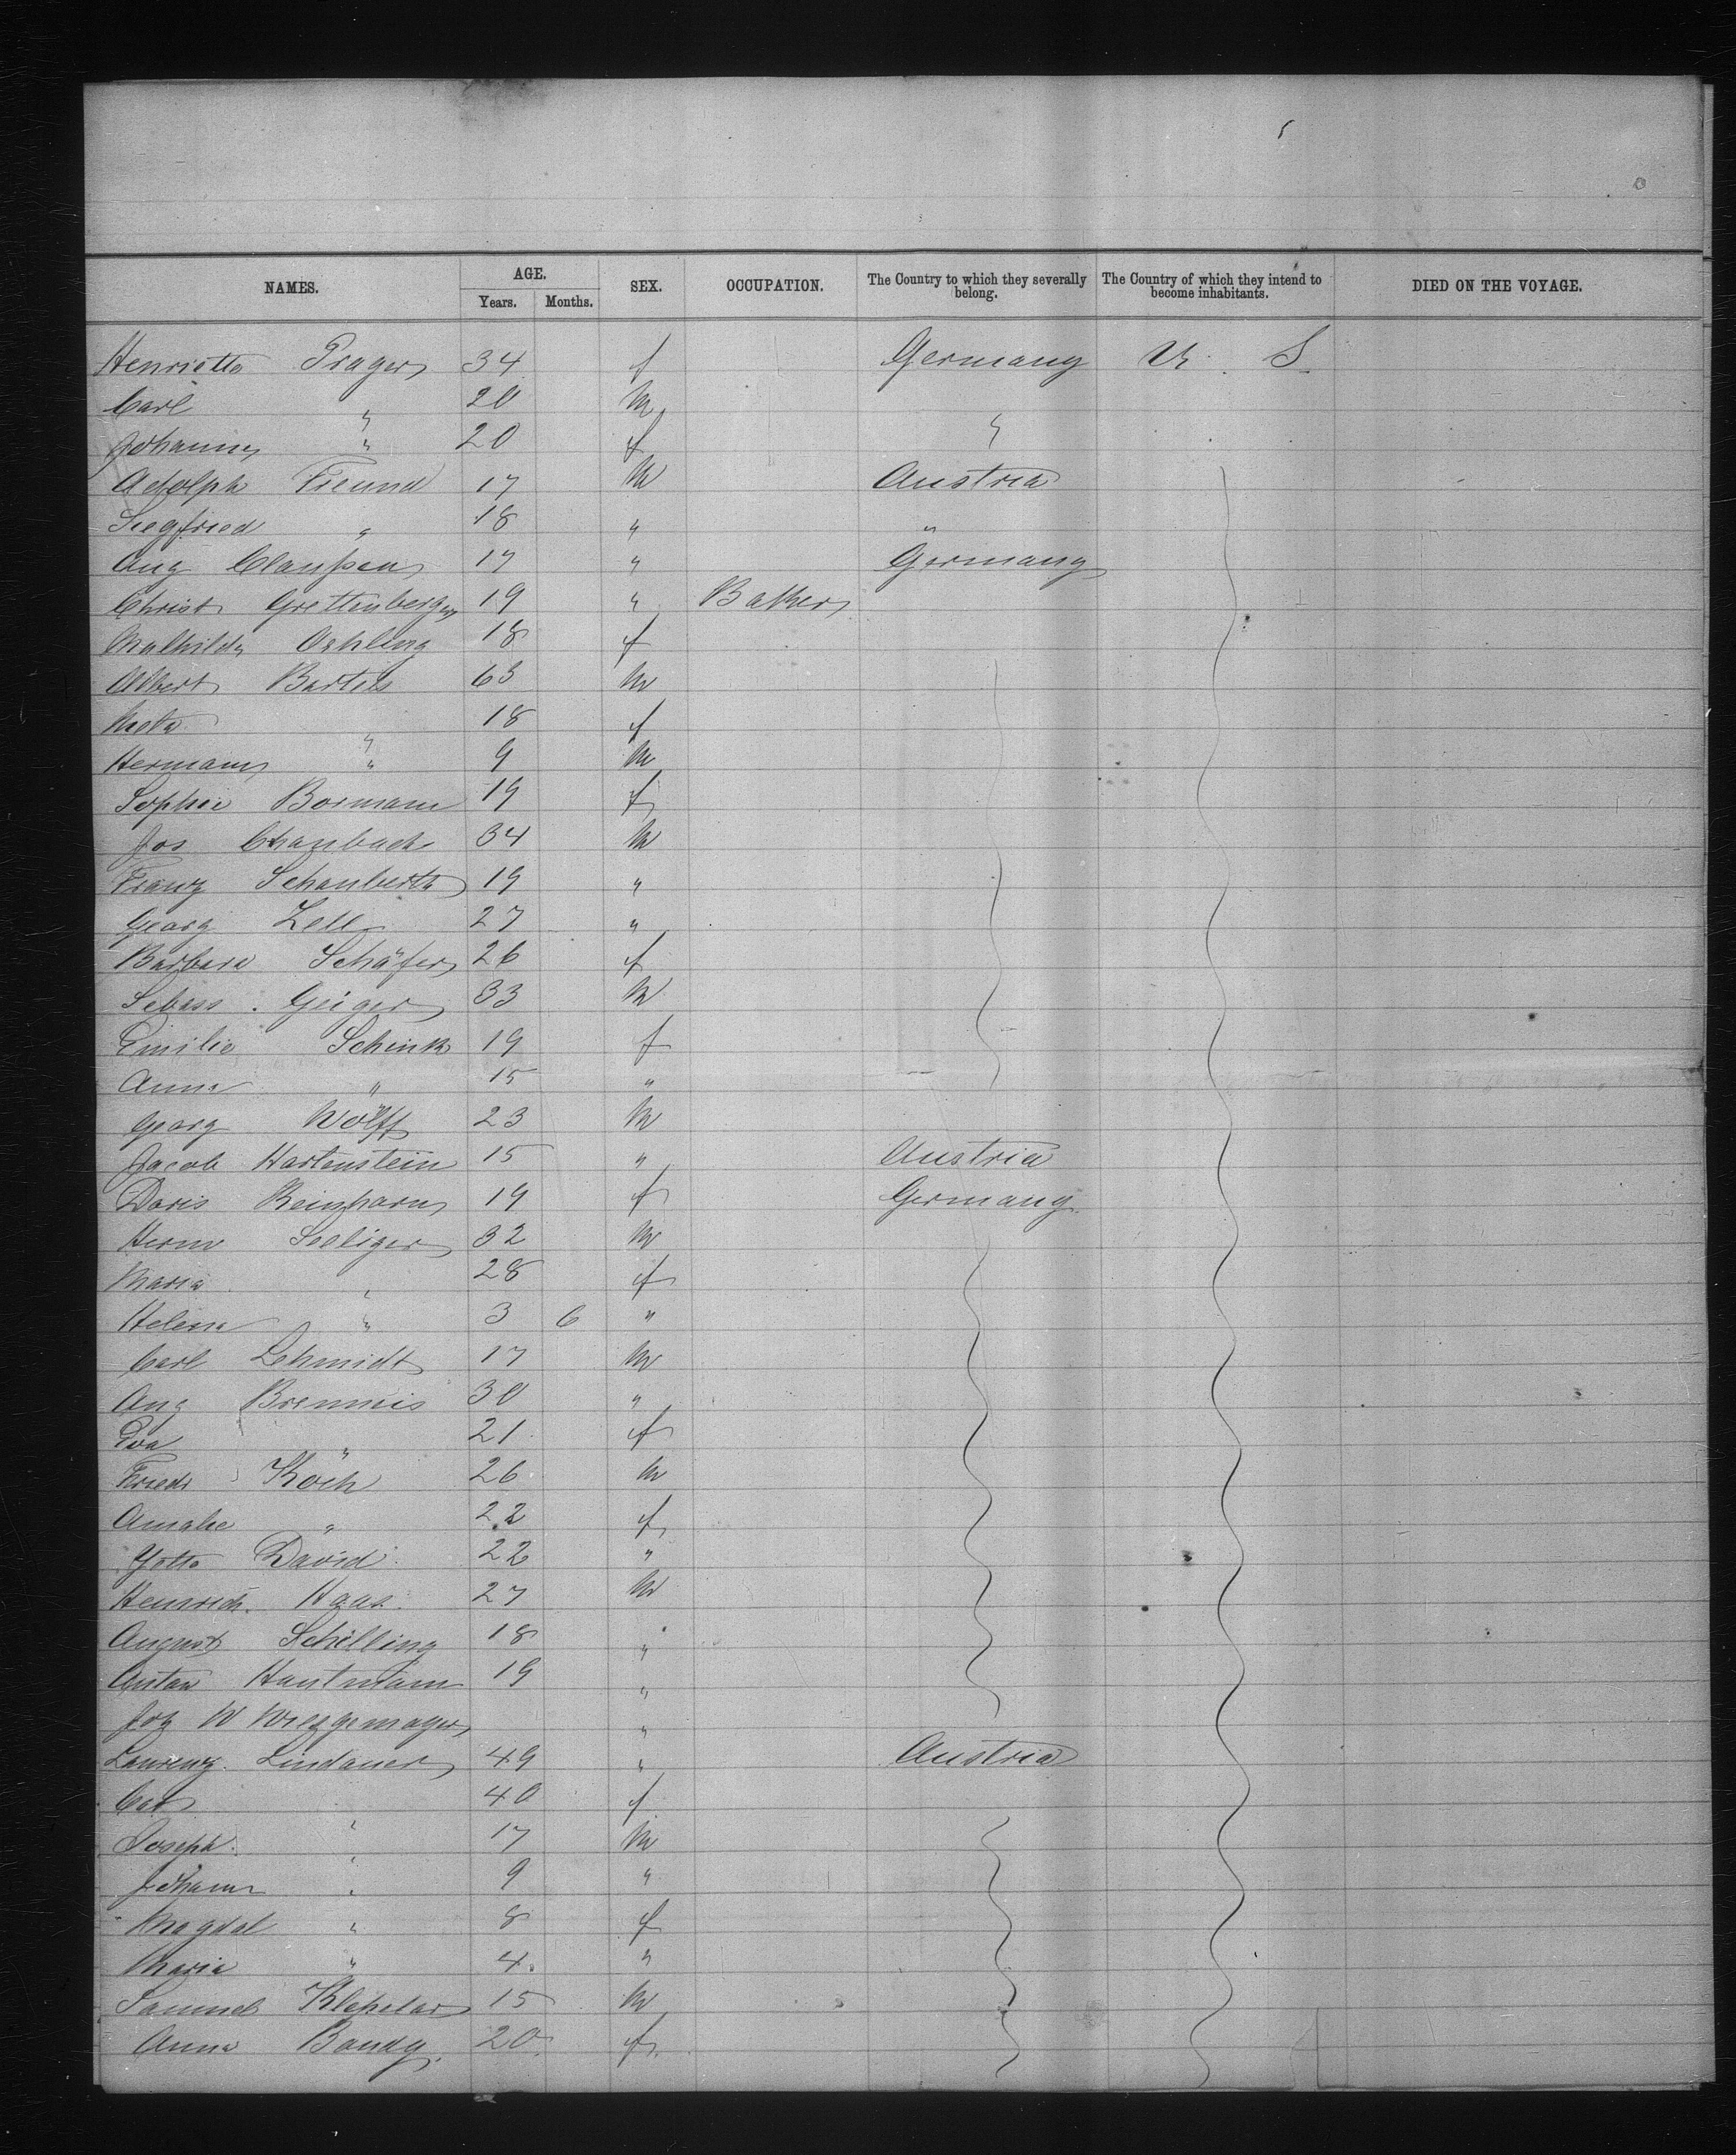 NAMES. AGE. Years. Months. SEX. OCCUPATION. The Country to which they severally belong. The Country of which they intend to become inhabitants. DIED ON THE VOYAGE.
Henrietta Prager 34 f Germany U. S.
Carl " 20 M
Johanna " 20 f "
Adolph Freund 17 M Austria
Siegfried " 18 " "
Aug Claußen 17 " Germany
Christ Grettenberger 19 " Baker
Mathilde Oehling 18 f
Albert Bartels 63 M
Meta " 18 f
Hermann " 9 M
Sophie Bormann 19 f
Jos 34 M
Franz Schauberth 19 "
Georg Zell 27 "
Barbara Schäfer 26 f
Sebass. Geiger 33 M
Emilie Schenk 19 f
Anna " 15 "
Georg Wolff 23 M
Jacob Hartenstein 15 " Austria
Doris 19 f Germany
Herm Seeliger 32 M
Maria " 28 f
Helena " 3 6 "
Carl Schmidt 17 M
Aug Bremmeis 30 "
Eva " 21 f
Friedr Koch 26 M
Amalie " 22 f
Yetta David 22 "
Heinrich Haas 27 M
August Schilling 18 "
Gustav Hautmann 19 "
Joh W "
Laurenz Lindauer 49 " Austria
Cat " 40 f
Joseph " 17 M
Johann " 9 "
Magdal " 8 f
Maria " 4 "
Samuel 15 M
Anna Bandy 20 f